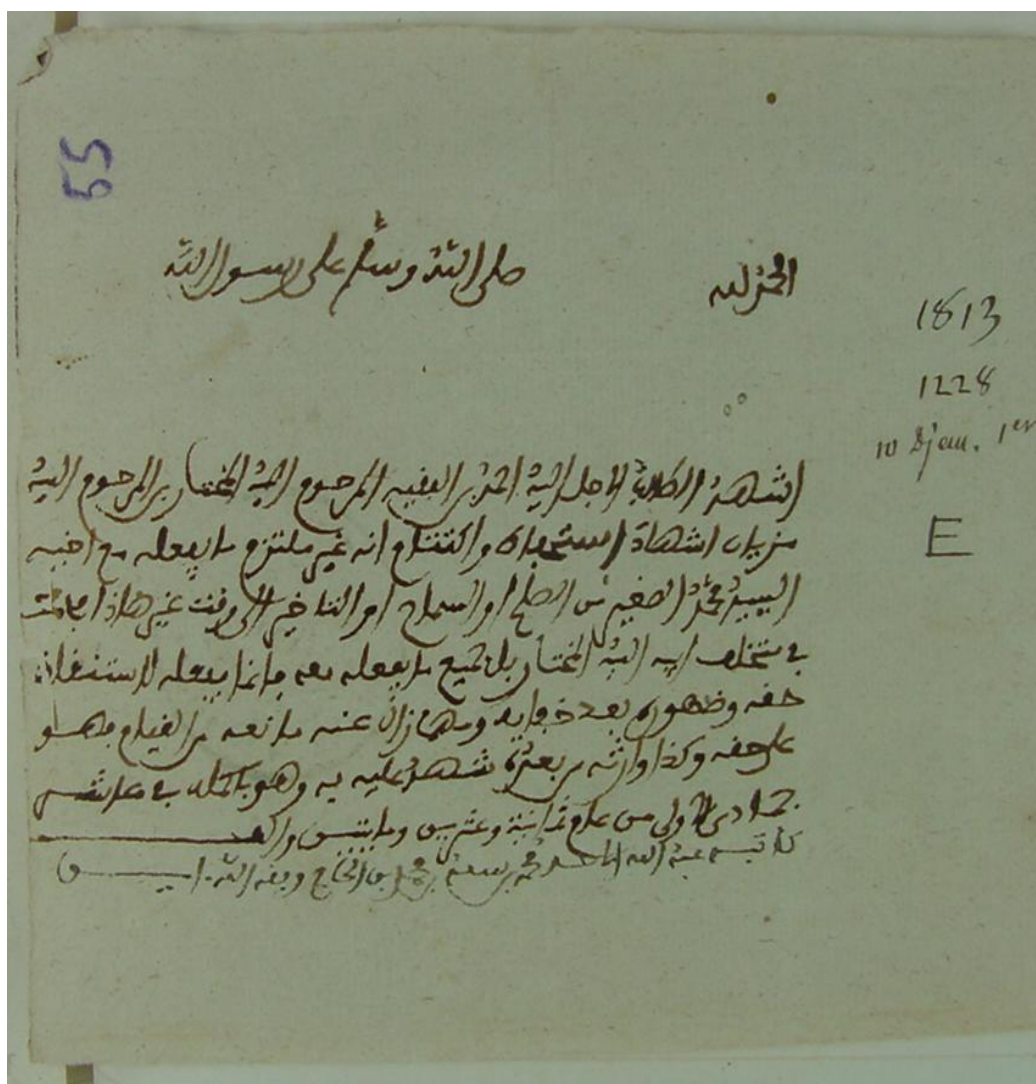 55
الحمد لله صلى الله وسلم على رسول الله
1813
1228
10 Djou. 1er
E
اشهد الطالب الاجل السيد احمد بن الفقيه المرحوم السيد المختار بن المرحوم السيد
مزيان اشهاد استحفاظ واكتتام انه غير ملتزم ما يفعله مع اخيه
السيد محمد الصغير من الصلح او السماح او التاخير الى وقت غير هاذا
في متخلف ابيه السيد المختار بل جميع ما يفعله معه فانما يفعله لاستنقاذ
حقه وظهوره بعد خفايه ومهما زال عنه مانعه من القيام فهو
على حقه وكذا وارثه من بعده شهد عليه به وهو باكمله في عاشر
جمادى الاولى من عام ثمانية وعشرين ومايتين والف
كاتبه عبد الله محمد بن سعد بن محمد بن الحاج وفقه الله امين